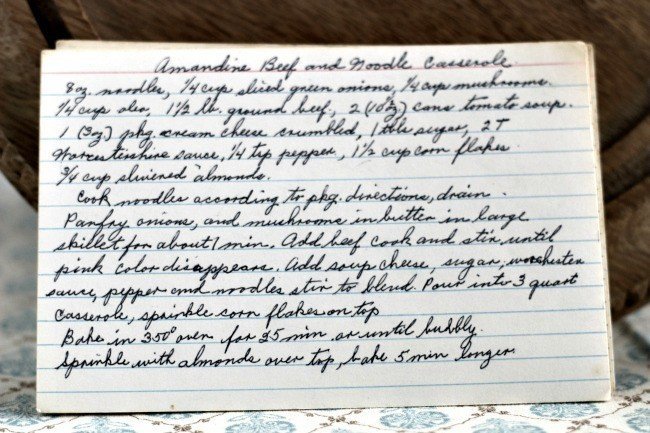 Amandine Beef and Noodle Casserole
8 oz noodles, 1/4 cup sliced green onions, 1/4 cup mushrooms.
1/4 cup oleo, 1 1/2 lb. ground beef, 2 (10 oz) cans tomato soup.
1 (3oz) pkg. cream cheese crumbled, 1 tbls sugar, 2 T
Worcesteishire sauce, 1/4 tsp pepper, 1 1/2 cup corn flakes
3/4 cup slivered almonds.
Cook noodles according to pkg. directions, drain.
Panfry onions, and mushrooms in butter in large
skillet for about 1 min. Add beef cook and stir until
pink color disappears. Add soup cheese, sugar, worchester
sauce, pepper and noodles stir to blend. Pour into 3 quart
casserole, sprinkle corn flakes on top
Bake in 350° oven for 35 min or until bubbly.
Sprinkle with almonds over top, bake 5 min longer.